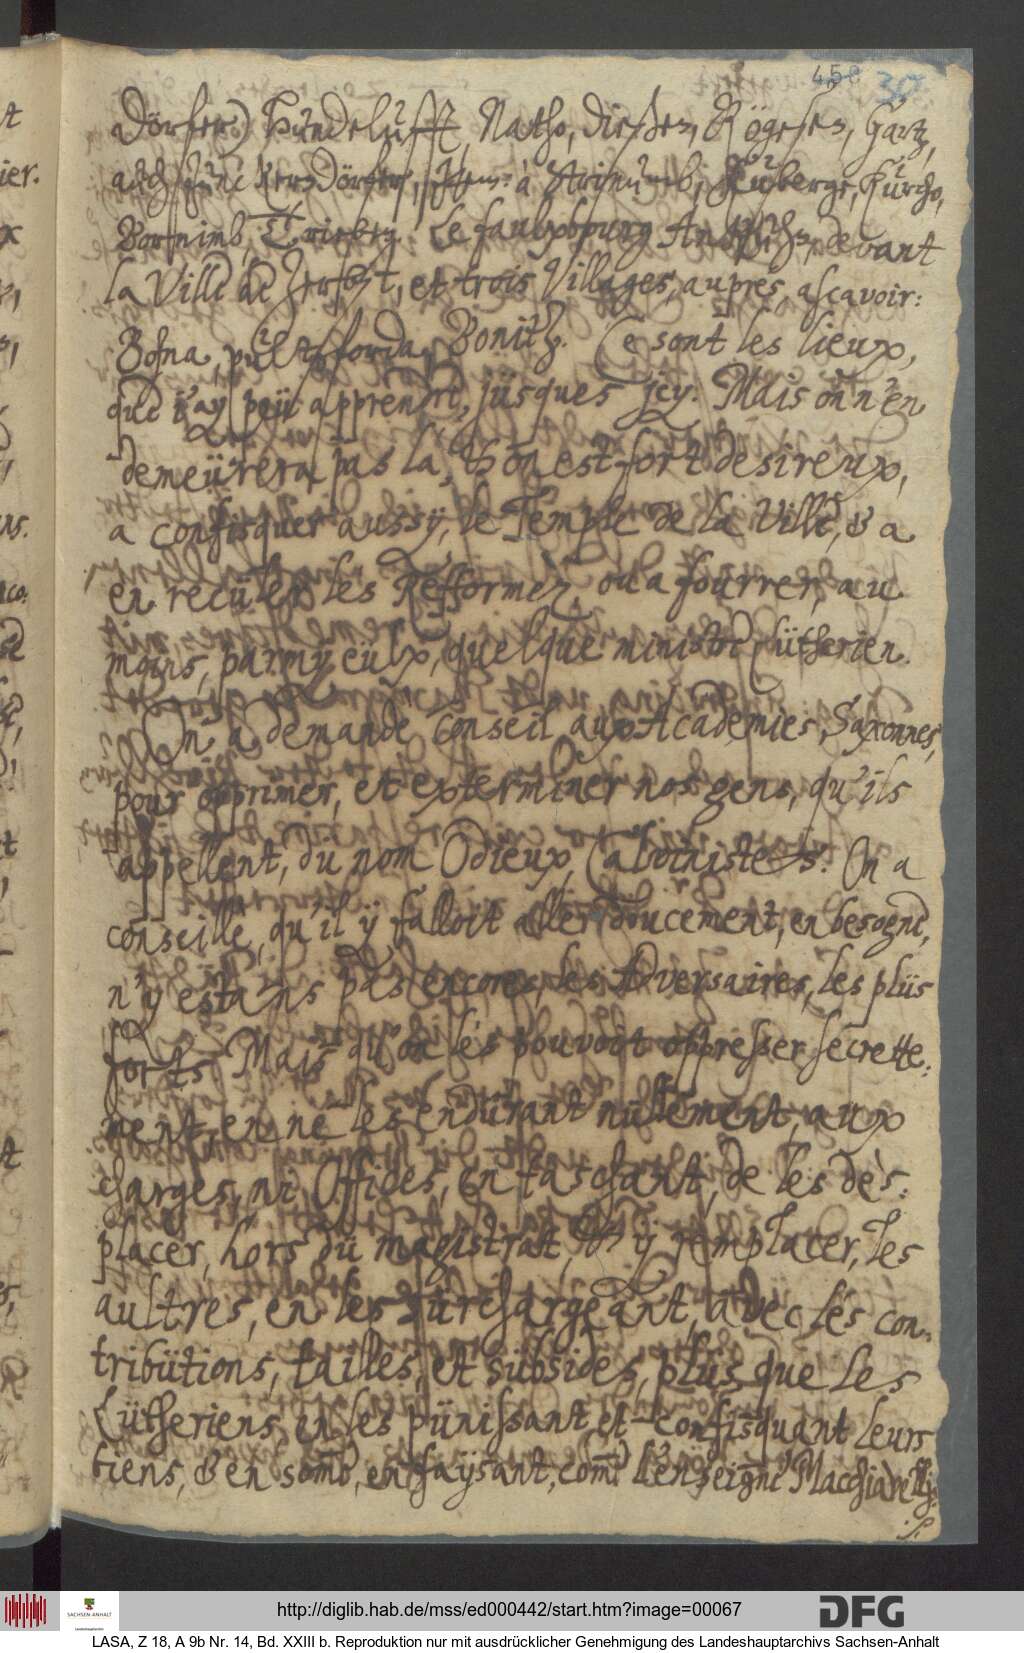 458 30
Dörfer) Hundelufft, Natho, Dießen, Rögesen, Gartz,
auch sünd Kersdörfer, Item: à
Bornimb, Trieberg. Le faulxbourg Anckuhn, devant
la Ville de Zerbst, et trois Villages, aupres, ascavoir:
Bohna, Pülsforda, Bonitz. Ce sont les lieux,
que i'ay peü apprendre, jüsques jcy. Mais on n'en
demeürera pas là, & on est fort desireux,
a confisquer aussÿ, le Temple de la Ville, & a
en recüler les Refformèz, ou a fourrer, au
moins, parmÿ eülx, quelque ministre Lütherien.
On a demandè Conseil aux Academies, Saxonnes,
pour opprimer, et exterminer nos gens, qu'ils
appellent, dü nom Odieux, Calvinistes. On a
conseillè, qu'il ÿ falloit aller doucement, en besogne,
n'ÿ estans pas encores, les Adversaires, les plüs
forts. Mais qu'on les pouvoit oppresser secrette:
ment, en ne les endürant nüllement, aux
charges, ni Offices, en taschant, de les dès:
placer, hors dü magistrat, & ÿ remplacer, les
aultres, en les sürchargeant, avec les con-
tribütions, tailles, et sübsides, plüs que les
Lütheriens, en les pünissant, et confisquant leurs
biens, & en som̃e, en faÿsant, com̃e l'enseigne Macchiavelli,
./.
http://diglib.hab.de/mss/ed000442/start.htm?image=00067
DFG
SACHSEN-ANHALT
LASA, Z 18, A 9b Nr. 14, Bd. XXIII b. Reproduktion nur mit ausdrücklicher Genehmigung des Landeshauptarchivs Sachsen-Anhalt